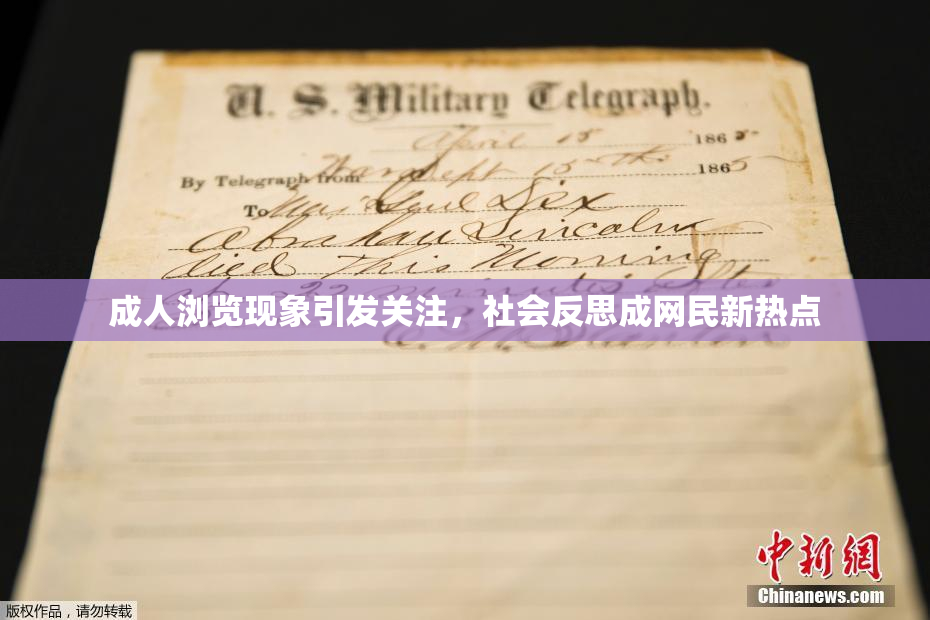 U. S. Military Telegraph.
April 15 1865
By Telegraph from War Dept 15th 1865
To Maj Genl Dix
Abraham Lincoln
died This Morning
22 minutes after
成人浏览现象引发关注，社会反思成网民新热点
E. M. Stanton
中新网
Chinanews.com
版权作品，请勿转载